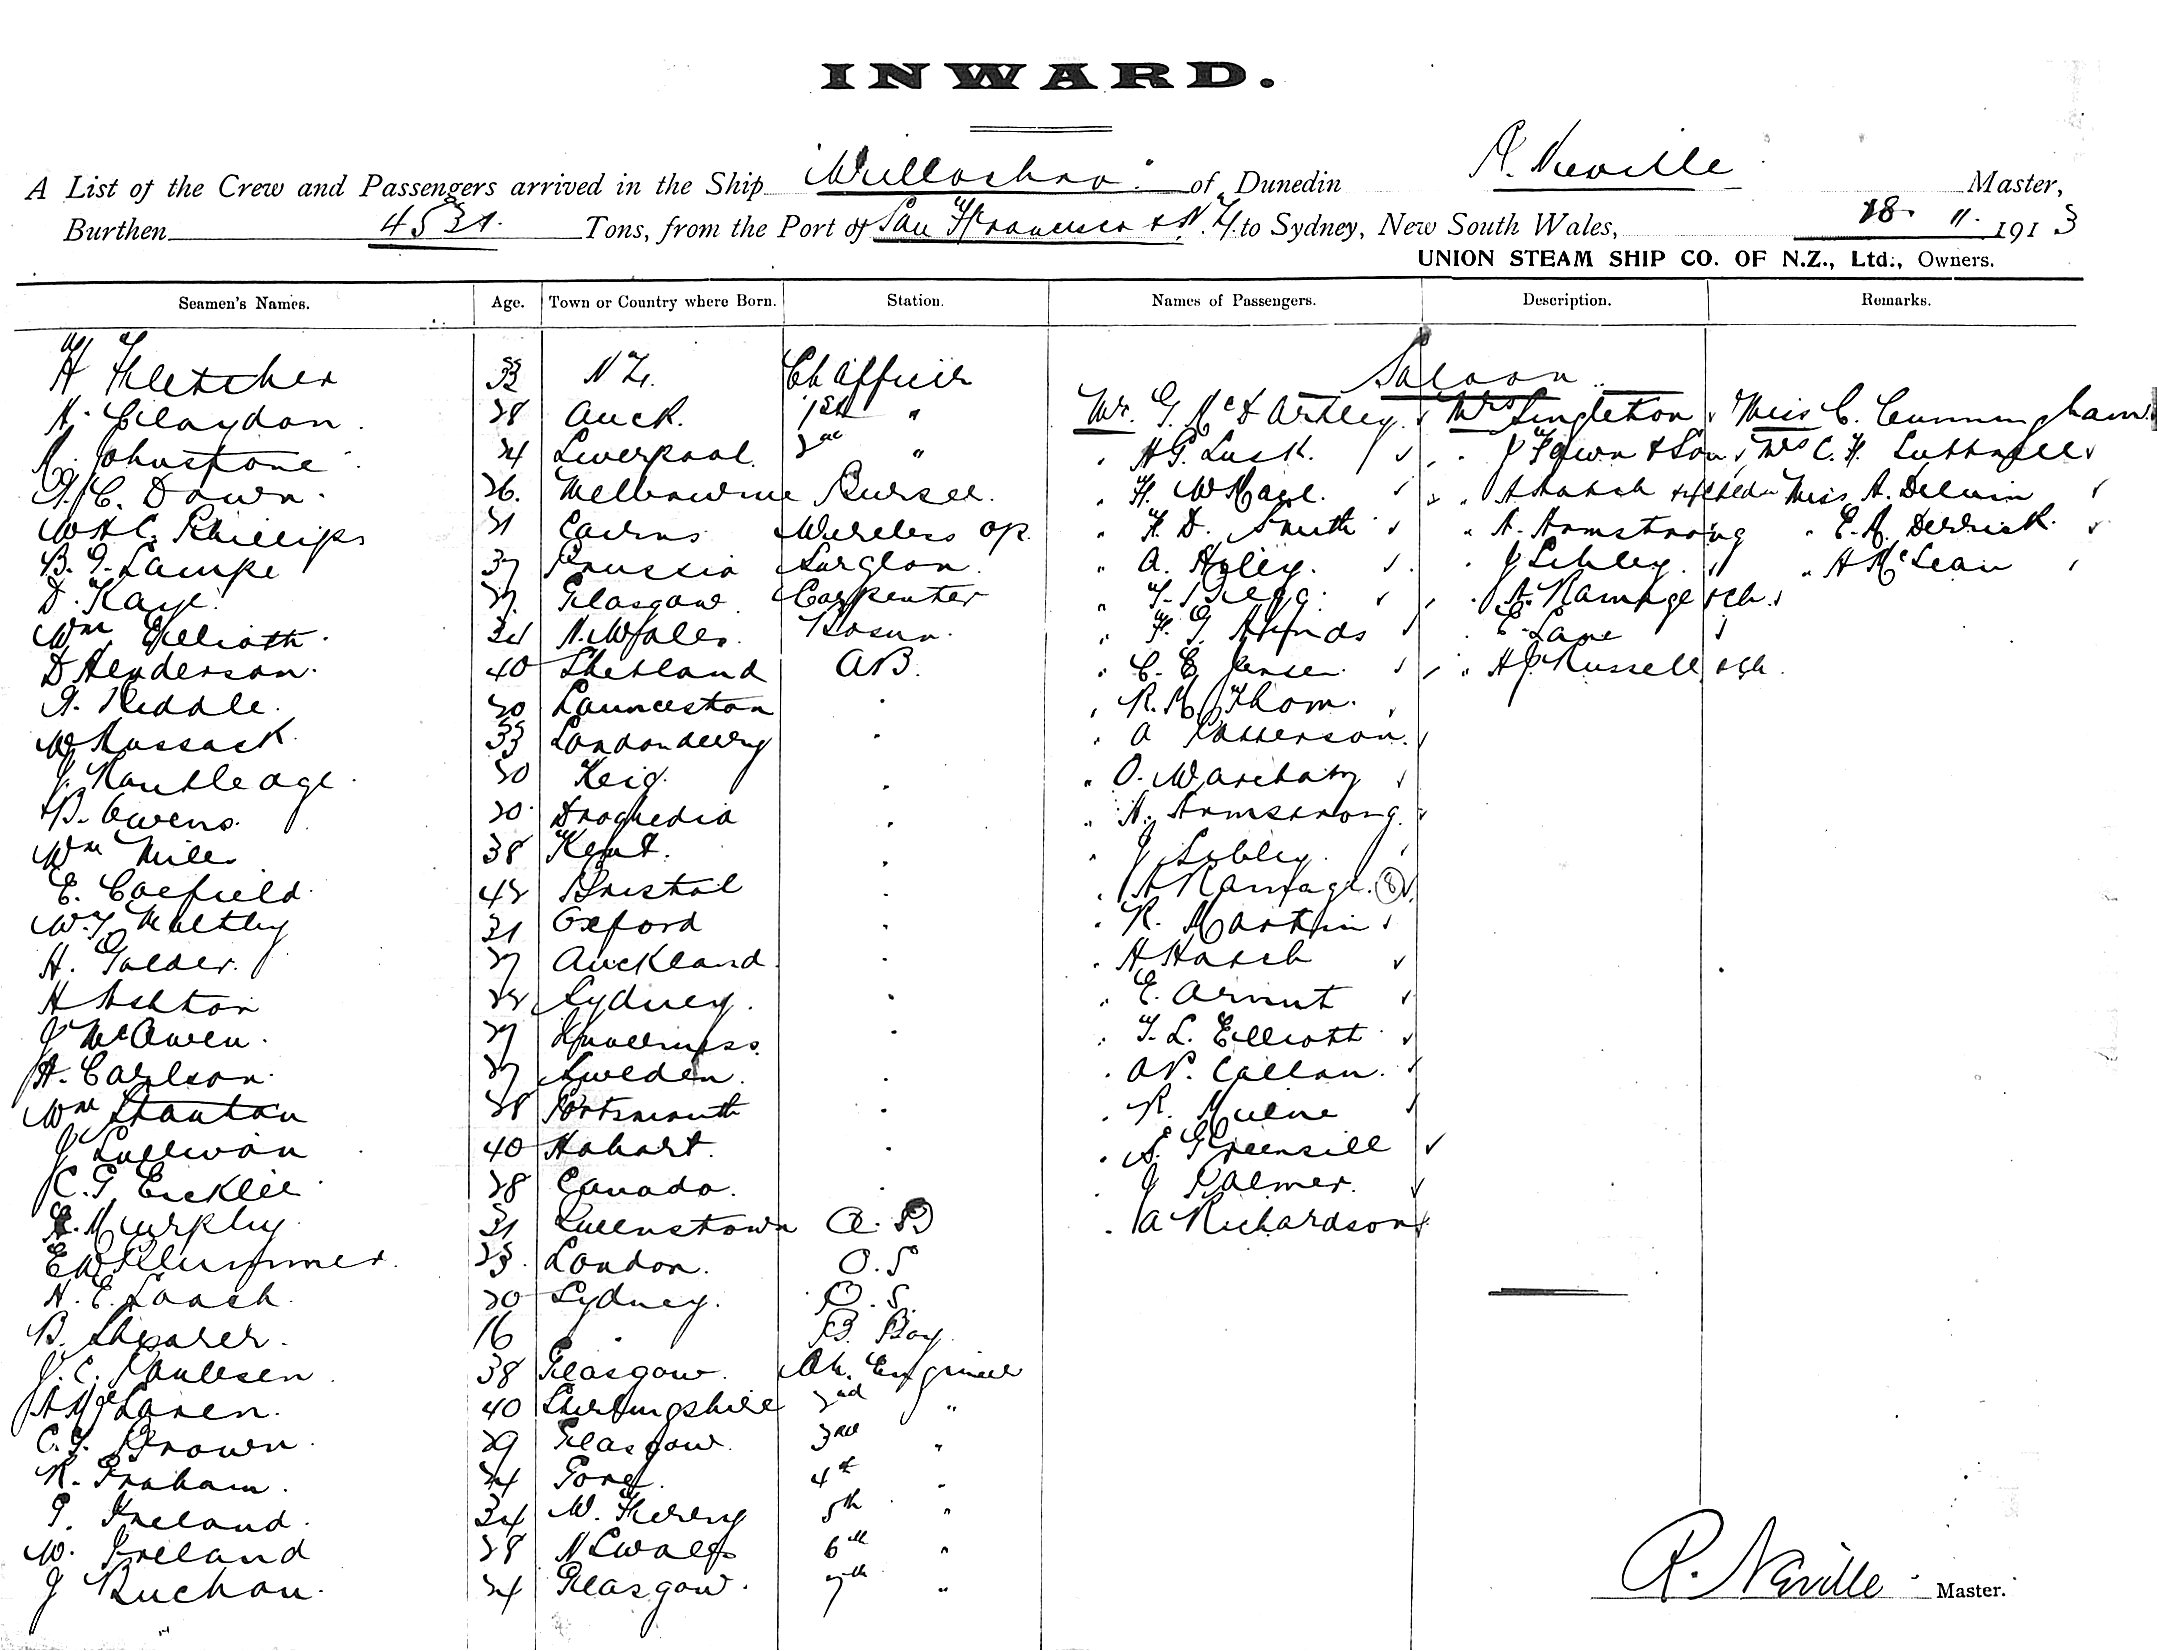 INWARD.
A List of the Crew and Passengers arrived in the Ship "Willochra" of Dunedin R. Neville Master,
Burthen 4531. Tons, from the Port of San Francisco & N.Z. to Sydney, New South Wales, 18. 11. 1913
UNION STEAM SHIP CO. OF N.Z., Ltd., Owners.
Seamen's Names. Age. Town or Country where Born. Station. Names of Passengers. Description. Remarks.
Saloon
H Fletcher 33 N Z. Ch Officer
A. Claydon 28 Auck. 1st " Mr. G. McD Artley. Mrs Singleton Miss C. Cunningham
Johnstone 24 Liverpool. 2nd " " H G. Lusk. " J Fawn & Son Mrs C. F.
C. Down. 26. Melbourne Purser. " F. " A Hatch Miss A. Delvin
W H C. Phillips 21 Cairns Wireless Op. " F. D. Smith " A. Armstrong " E. A. Derrick.
B. G. Lampe 37 Prussia Surgeon. " A. " J Sibley. " A McLean
D. Kaye. 27. Glasgow. Carpenter " " A. Ramage & ch.
Wm Elliott. 24 N. Wales. Bosun. " F. G. Hinds " E. Lane
D Henderson. 40 Shetland A B. " C. E. Jensen. " H J Russell & ch.
Riddle. 20 Launceston " " R. M. Thom.
W 33 Londonderry " " A Patterson.
J. Routledge. 20 " " O.
B. Owens. 20. Drogheda " " A. Armstrong.
Wm Miles 38 Kent. " " J Sibley.
E. Coefield. 42 Bristol " " A Ramage. (8)
W. T. Maltby 31 Oxford " " R. Martin
H. Golder. 27 Auckland. " " A Hatch
H Ashton 22 Sydney. " " E.
J McOwen. 27 Inverness. " " T. L. Elliott
A. Carlson. 27 Sweden. " " A P. Callan.
Wm Stanton 28 Portsmouth " " R. Milne
J Sullivan 40 Hobart. " " Greensill
C. G. 28 Canada. " " J Palmer.
Murphy. 31 Queenstown A. B " A Richardson
E W Plummer. 23. London. O. S
H. E. 20 Sydney. O. S.
B. Shearer. 16 " B. Boy.
J. C. Paulsen 38 Glasgow. Ch. Engineer
A McLaren. 40 Stirlingshire 2nd "
C. J. Brown. 29 Glasgow. 3rd "
R. Graham. 24 Gore. 4th "
Ireland. 24 W. 5th "
W. Ireland 28 N S Wales 6th "
J Buchan. 24 Glasgow. 7th "
R. Neville Master.